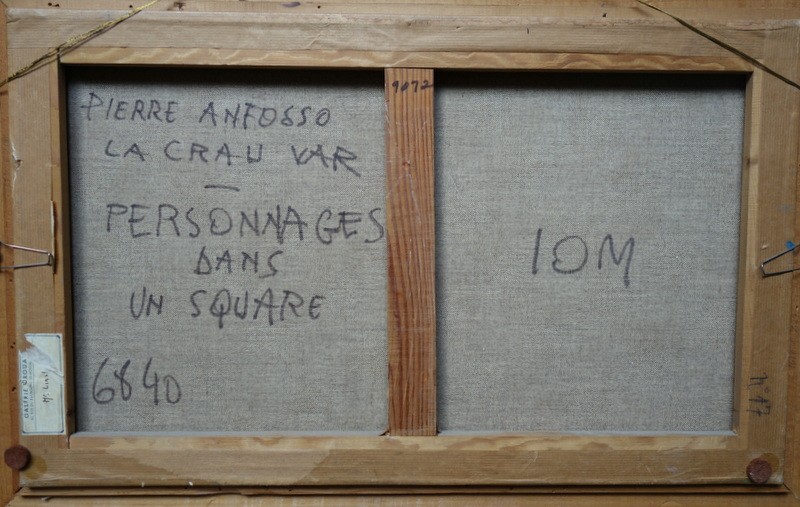 PIERRE ANFOSSO
LA CRAU VAR
—
PERSONNAGES
DANS
UN SQUARE
6840
9072
10M
n°17
GALERIE